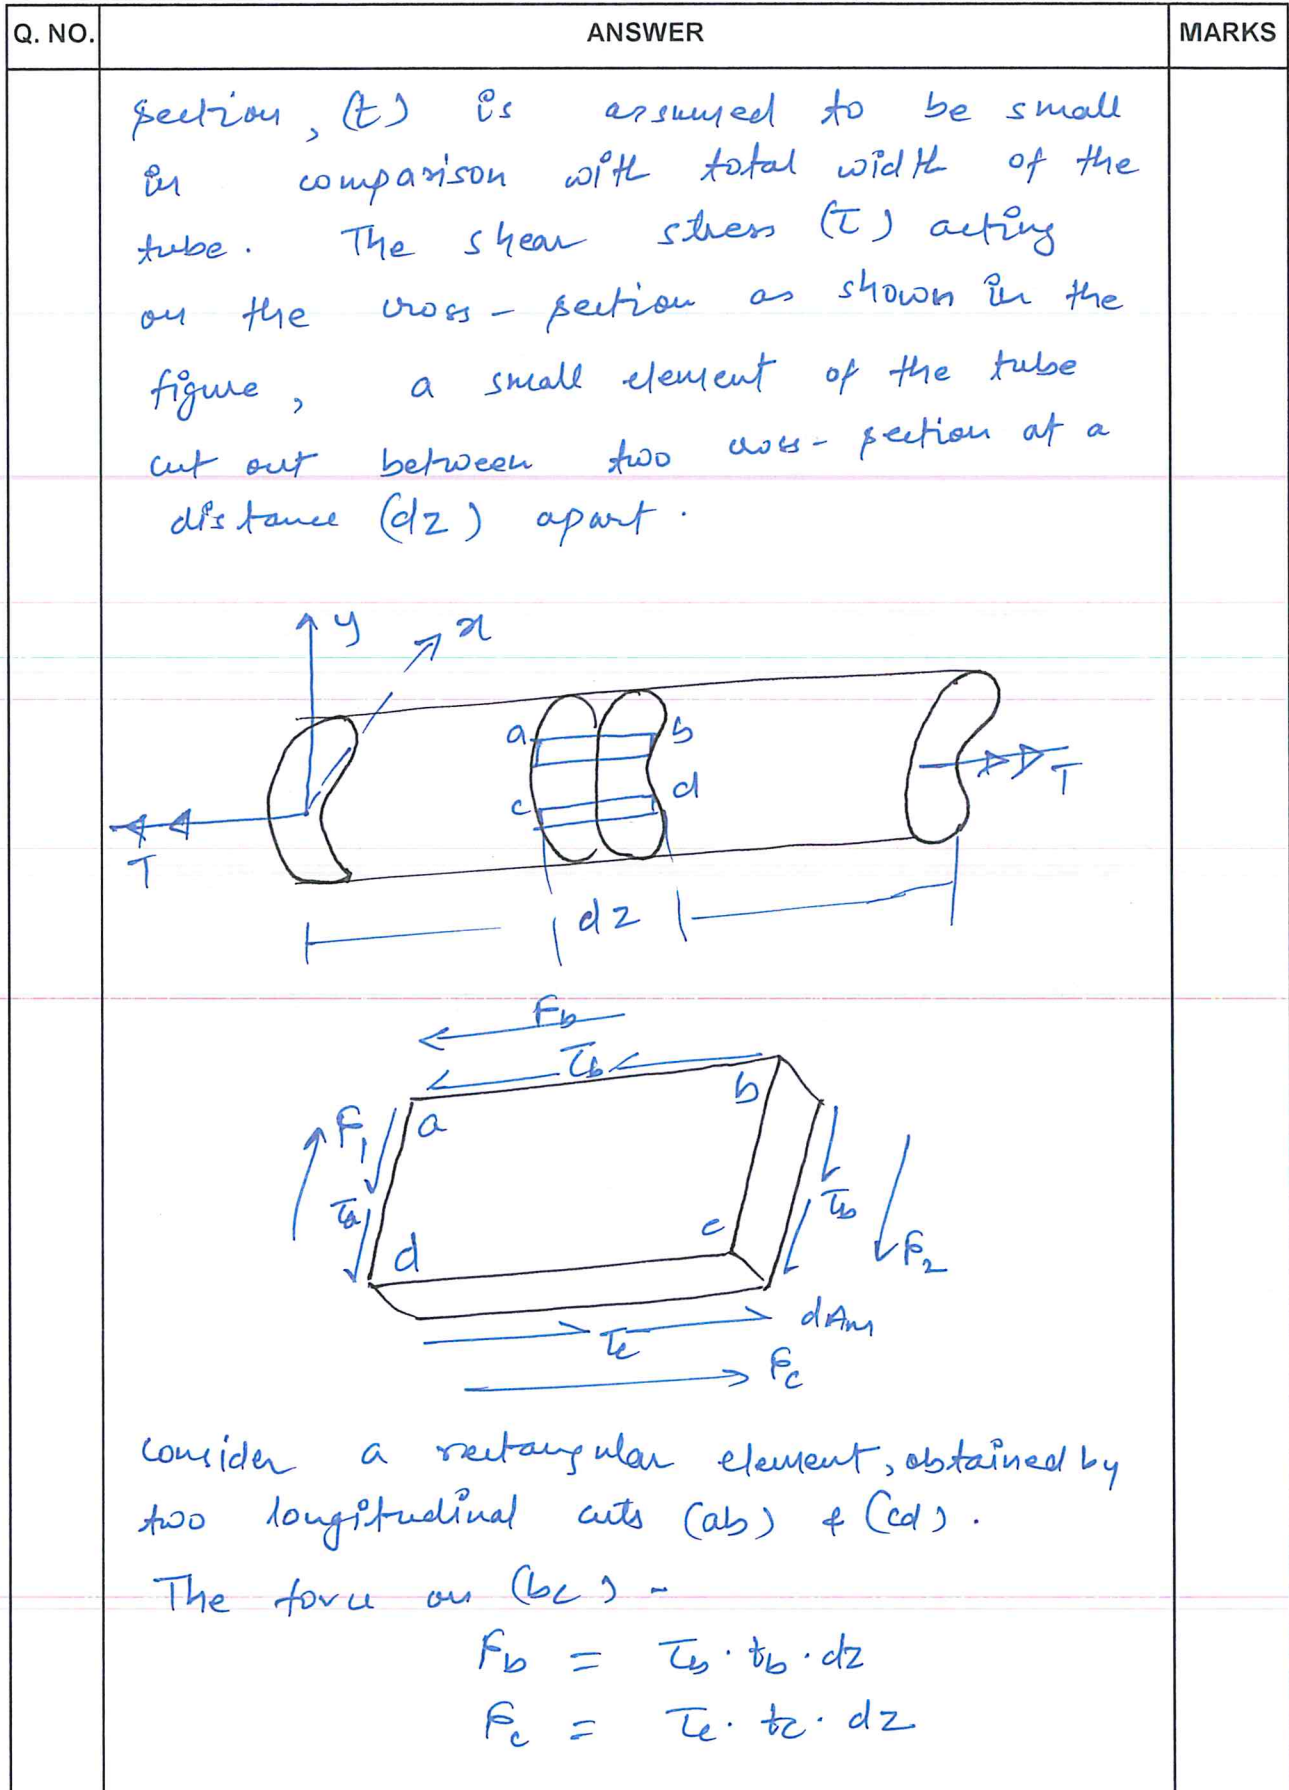 Q. NO. ANSWER MARKS
section, (t) is assumed to be small
in comparison with total width of the
tube. The shear stress (τ) acting
on the cross - section as shown in the
figure, a small element of the tube
cut out between two cross - section at a
distance (dz) apart.
y x
a b
c d
T T
dz
F_b
τ_b
a b
F_1
τ_a τ_b
d c F_2
dAm
τ_c
F_c
consider a rectangular element, obtained by
two longitudinal cuts (ab) & (cd).
The force on (bc) -
F_b = τ_b · t_b · dz
F_c = τ_c · t_c · dz